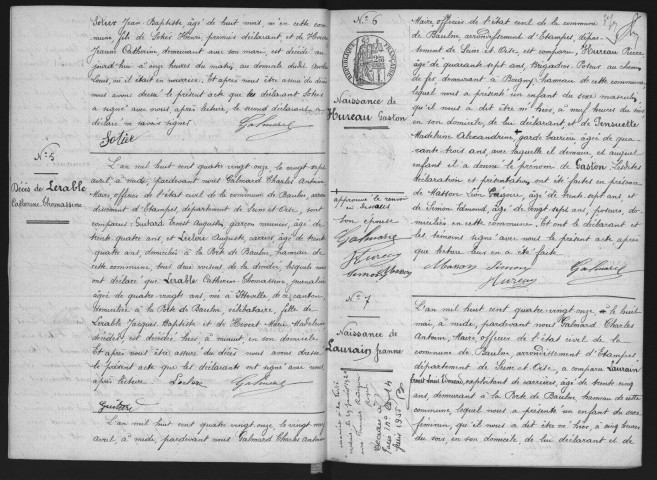 Sotier Jean Baptiste, âgé de huit mois, né en cette com
mune, fils de Sotier Henri, premier déclarant, et de
Jeanne Catherine, demeurant avec son mari, est décédé au
jourd'hui à onze heures du matin au domicile dudit
Louis, où il était en nourrice. Et après nous être assuré du décès
nous avons dressé le présent acte que le déclarant Sotier
a signé avec nous après lecture, le second déclarant a
déclaré ne savoir signer. Galmard
Sotier
N° 5
Décès de Lerable
Catherine Thomassine
L'an mil huit cent quatre vingt onze, le vingt sept
avril, à midi, pardevant nous Galmard Charles Antoine
Maire, officier de l'état civil de la commune de Baulne, arron
dissement d'Etampes, département de Seine et Oise, sont
comparus: Ernest Augustin garçon meunier, âgé de
trente quatre ans, et Leclere Auguste, carrier, âgé de trente
quatre ans, domiciliés à la Porte de Baulne, hameau de
cette commune, tous deux voisins de la décédée, lesquels nous
ont déclaré que Lerable Catherine Thomassine, journalière
âgée de quatre vingts ans, née à Itteville de ce canton
domiciliée à la Porte de Baulne, célibataire, fille de
Lerable Jacques Baptiste et de Marie Madeleine
décédés, est décédée hier, à minuit, en son domicile.
Et après nous être assuré du décès nous avons dressé
le présent acte que les déclarants ont signé avec nous
après lecture. Galmard
L'an mil huit cent quatre vingt onze, le vingt
avril, à midi, pardevant nous Galmard Charles Antoine
N° 6
RÉPUBLIQUE FRANÇAISE
Naissance de
Hureau Gaston
approuvé le renvoi
ci dessus
son épouse
Galmard
Hureau
Simon Masson
Maire, officier de l'état civil de la commune
de Baulne, arrondissement d'Etampes, dépar
tement de Seine et Oise, est comparu, Hureau Pierre
âgé de quarante sept ans, Brigadier Poseur au chemin
de fer, demeurant à hameau de cette commune
lequel nous a présenté un enfant du sexe masculin,
qu'il nous a dit être né hier, à neuf heures du soir
en son domicile, de lui déclarant, et de
Madeleine Alexandrine, + garde barrière âgée de qua
rante trois ans, avec laquelle il demeure, et auquel
enfant il a donné le prénom de Gaston. Lesdites
déclaration et présentation ont été faites en présence
de Masson Léon, âgé de trente sept ans, et
de Simon Edmond, âgé de vingt sept ans, poseurs, do
miciliés en cette commune. Et ont le déclarant et
les témoins signé avec nous le présent acte après
que lecture leur en a été faite.
Masson Simon Galmard
Hureau
N° 7
Naissance de
Laurain Jeanne
L'an mil huit cent quatre-vingt onze, le huit
mai, à midi, pardevant nous Galmard Charles
Antoine, Maire, officier de l'état civil de la
commune de Baulne, arrondissement d'Etampes
département de Seine et Oise, a comparu Laurain
Ernest Louis Edouard, exploitant de carrières, âgé de trente cinq
ans, demeurant à la Porte de Baulne, hameau de cette
commune, lequel nous a présenté un enfant du sexe
féminin, qu'il nous a dit être né hier, à cinq heures
du soir, en son domicile de lui déclarant et de